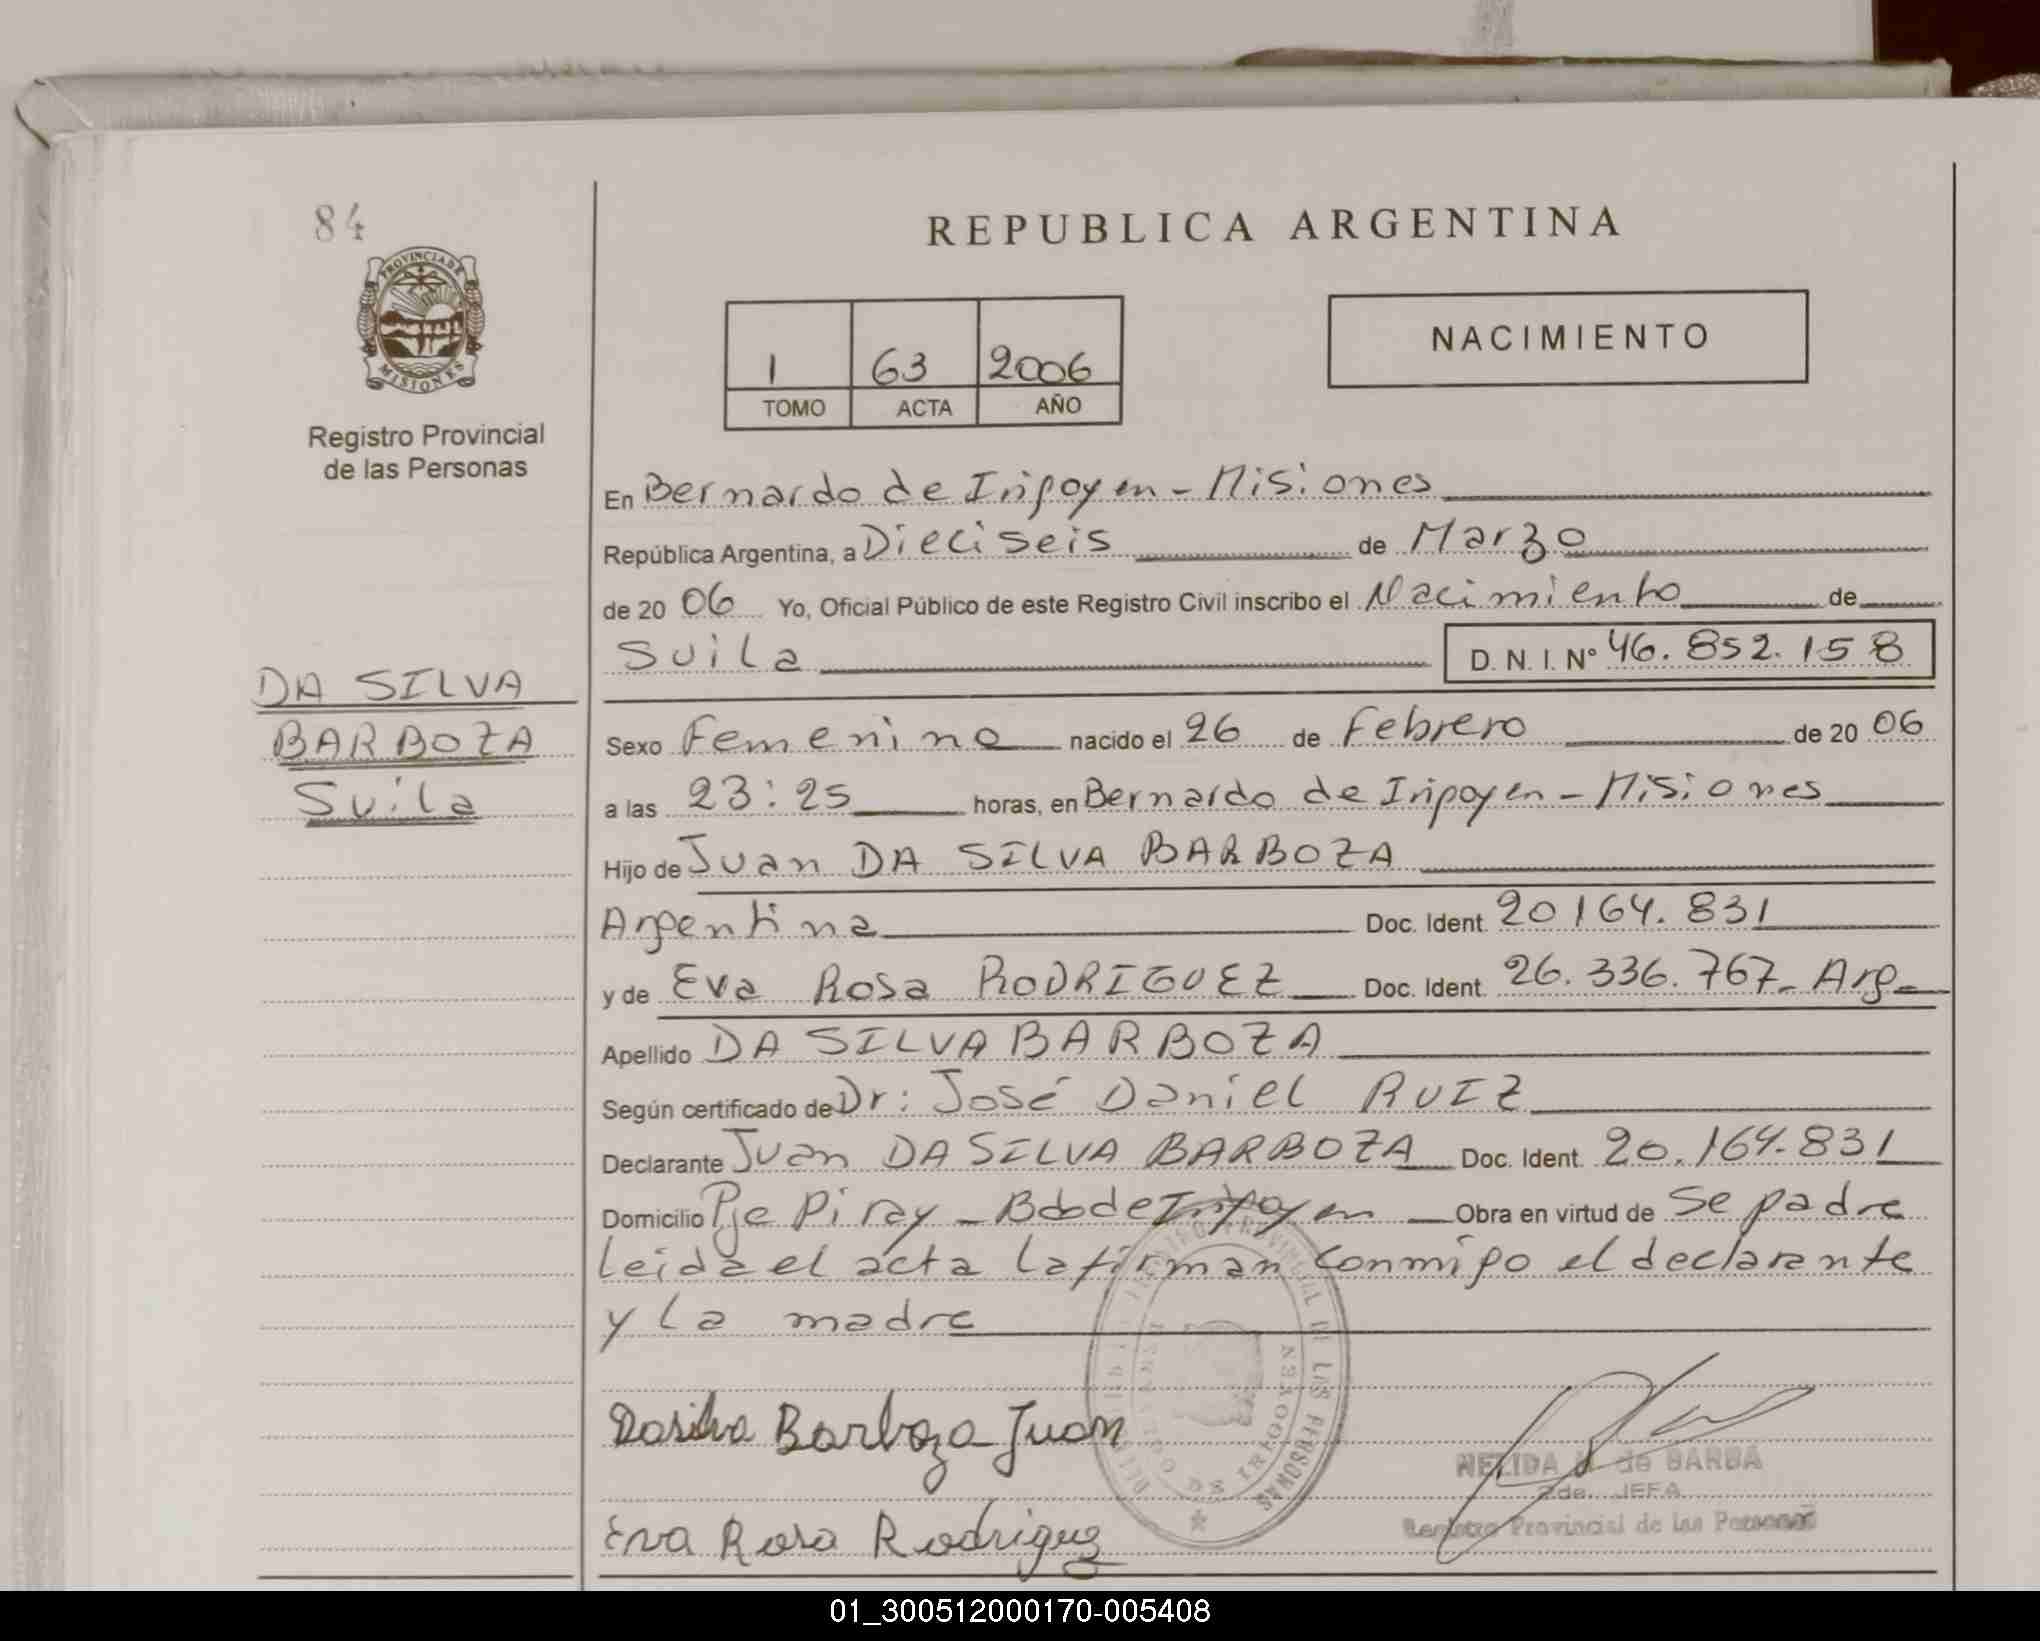 84
PROVINCIA DE
MISIONES
Registro Provincial
de las Personas
DA SILVA
BARBOZA
Suila
REPUBLICA ARGENTINA
1 63 2006
TOMO ACTA AÑO
NACIMIENTO
En Bernardo de Irigoyen - Misiones
República Argentina, a Dieciseis de Marzo
de 20 06 Yo, Oficial Público de este Registro Civil inscribo el Nacimiento de
Suila D. N. I. Nº 46.852.158
Sexo Femenino nacido el 26 de Febrero de 20 06
a las 23:25 horas, en Bernardo de Irigoyen - Misiones
Hijo de Juan DA SILVA BARBOZA
Argentina Doc. Ident. 20164.831
y de Eva Rosa RODRIGUEZ Doc. Ident. 26.336.767- Arg-
Apellido DA SILVA BARBOZA
Según certificado de Dr: José Daniel RUIZ
Declarante Juan DA SILVA BARBOZA Doc. Ident. 20.164.831
Domicilio Pje Piray - Bdo de Irigoyen Obra en virtud de Se padre
leida el acta la firman conmigo el declarante
y la madre
Dasilva Barboza Juan
Eva Rosa Rodriguez
REGISTRO PROVINCIAL DE LAS PERSONAS
BERNARDO DE IRIGOYEN
NELIDA de BARBA
2da. JEFA
Registro Provincial de las Personas
01_300512000170-005408